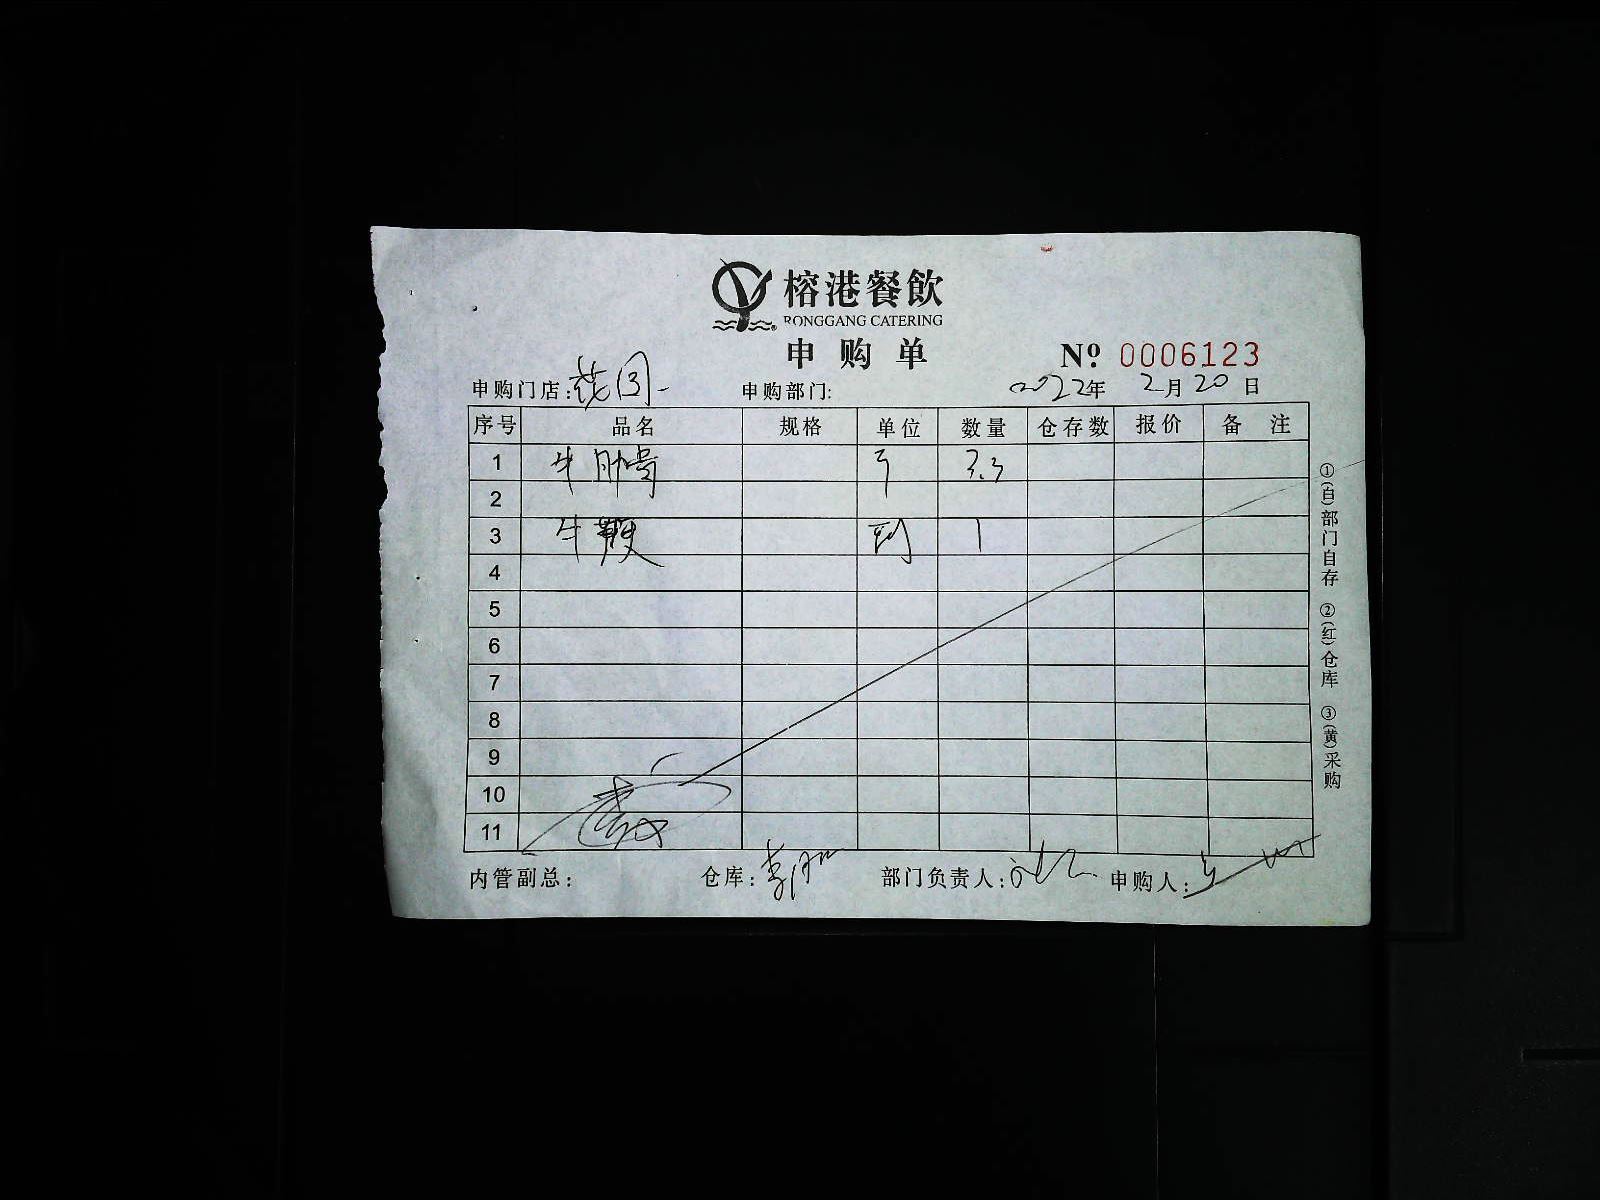 榕港餐飲
RONGGANG CATERING
申购单
Nº 0006123
申购门店: 申购部门: 2022年 2月20日
序号 品名 规格 单位 数量 仓存数 报价 备注
1 牛 斤 3.3
2
3 牛鞭 1
4
5
6
7
8
9
10
11
内管副总: 仓库: 部门负责人: 申购人:
①(白)部门自存 ②(红)仓库 ③(黄)采购